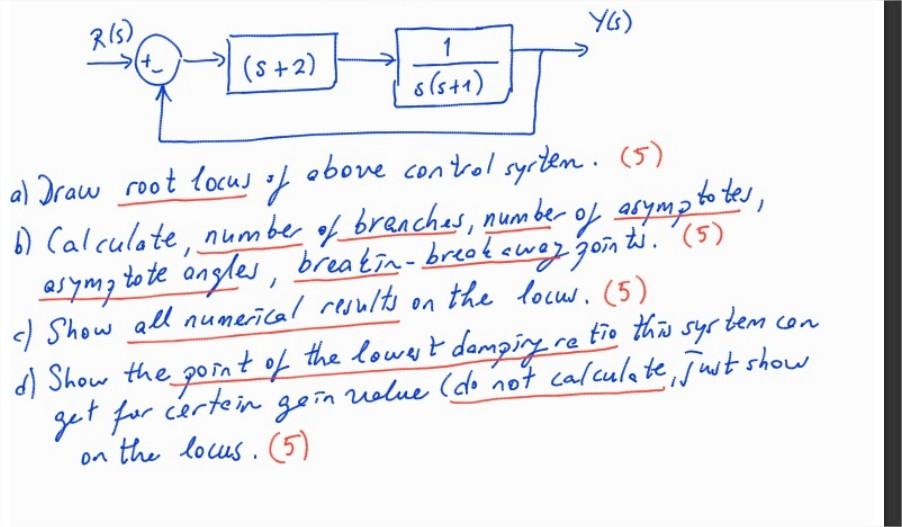 R(s)
Y(s)
+ -
(s+2)
1
s(s+1)
a) Draw root locus of above control system. (5)
b) Calculate, number of branches, number of asymptotes,
asymptote angles, breakin-breakaway points. (5)
c) Show all numerical results on the locus. (5)
d) Show the point of the lowest damping ratio this system can
get for certain gain value (do not calculate, just show
on the locus. (5)